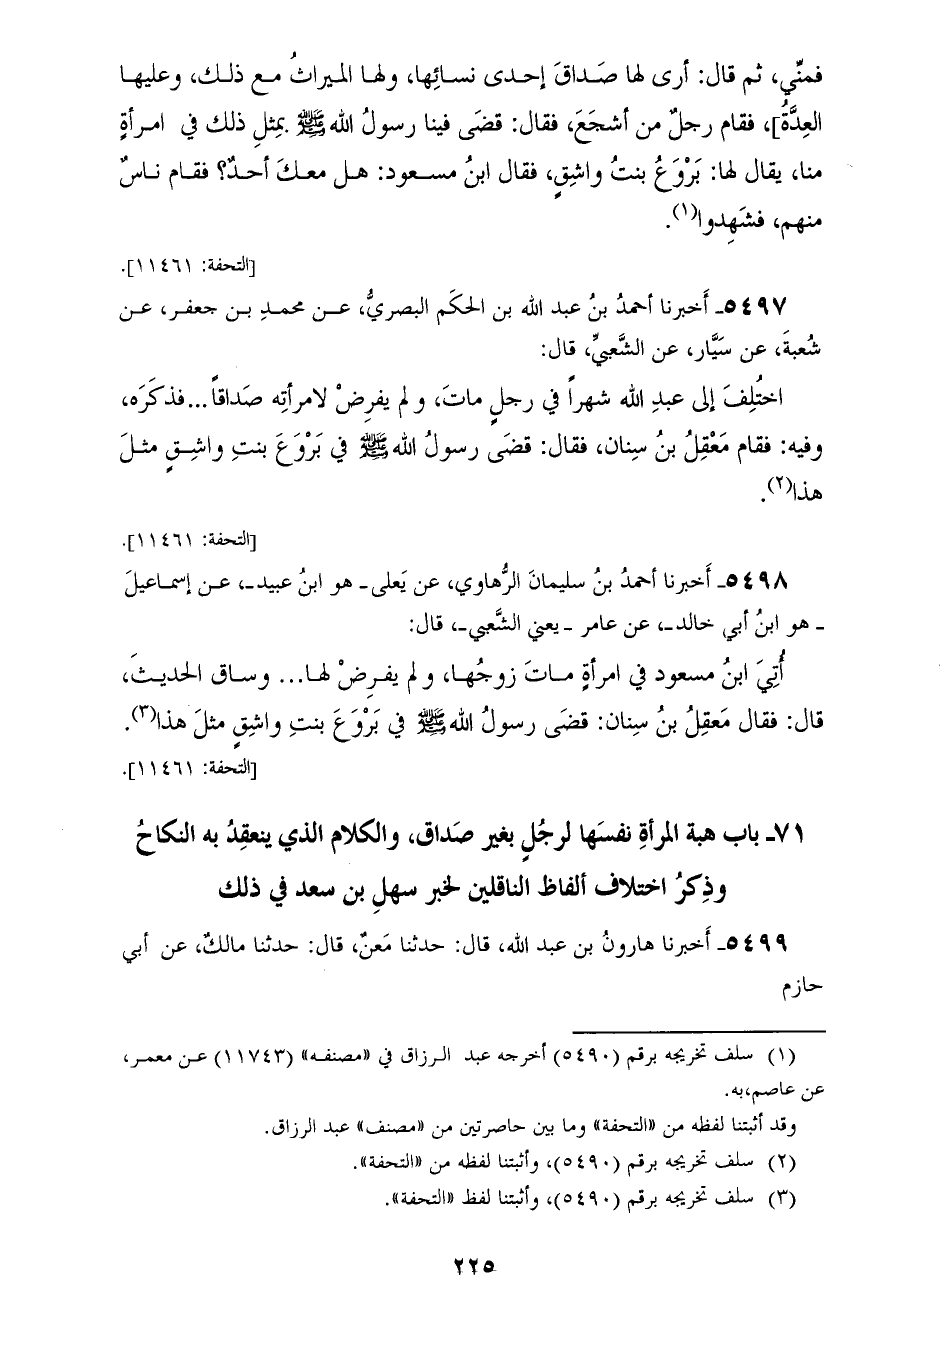 فمنّي، ثم قال: أرى لها صَداقَ إحدى نسائِها، ولها الميراثُ مع ذلك، وعليها
العِدَّةُ]، فقام رجلٌ من أشجَعَ، فقال: قضَى فينا رسولُ الله ﷺ بمِثلِ ذلك في امرأةٍ
منا، يقال لها: بَرْوَعُ بنتُ واشِقٍ، فقال ابنُ مسعود: هل معكَ أحدٌ؟ فقام ناسٌ
منهم، فشَهِدوا(١).
[التحفة: ١١٤٦١].
٥٤٩٧ـ أَخبرنا أحمدُ بنُ عبد الله بن الحكَم البصريُّ، عن محمدِ بن جعفر، عن
شُعبةَ، عن سَيَّار، عن الشَّعبيِّ، قال:
اختُلِفَ إلى عبدِ الله شهراً في رجلٍ ماتَ، و لم يفرِضْ لامرأتِه صَداقاً... فذكَرَه،
وفيه: فقام مَعْقِلُ بنُ سِنان، فقال: قضَى رسولُ الله ﷺ في بَرْوَعَ بنتِ واشِقٍ مثلَ
هذا(٢).
[التحفة: ١١٤٦١].
٥٤٩٨ـ أَخبرنا أحمدُ بنُ سليمانَ الرُّهاوي، عن يَعلى ـ هو ابنُ عبيد ـ، عن إسماعيلَ
ـ هو ابنُ أبي خالد ـ، عن عامر ـ يعني الشَّعبي ـ، قال:
أُتِيَ ابنُ مسعود في امرأةٍ ماتَ زوجُها، و لم يفرِضْ لها... وساق الحديثَ،
قال: فقال مَعقِلُ بنُ سِنان: قضَى رسولُ الله ﷺ في بَرْوَعَ بنتِ واشِقٍ مثلَ هذا(٣).
[التحفة: ١١٤٦١].
٧١ـ باب هبة المرأةِ نفسَها لرجُلٍ بغير صَداق، والكلام الذي ينعقِدُ به النكاحُ
وذِكرُ اختلاف ألفاظ الناقلين لخبر سهلِ بن سعد في ذلك
٥٤٩٩ـ أَخبرنا هارونُ بن عبد الله، قال: حدثنا مَعنٌ، قال: حدثنا مالكٌ، عن أبي
حازم
(١) سلف تخريجه برقم (٥٤٩٠) أخرجه عبد الرزاق في «مصنفه» (١١٧٤٣) عن معمر،
عن عاصم، به.
وقد أثبتنا لفظه من «التحفة» وما بين حاصرتين من «مصنف» عبد الرزاق.
(٢) سلف تخريجه برقم (٥٤٩٠)، وأثبتنا لفظه من «التحفة».
(٣) سلف تخريجه برقم (٥٤٩٠)، وأثبتنا لفظ «التحفة».
٢٢٥